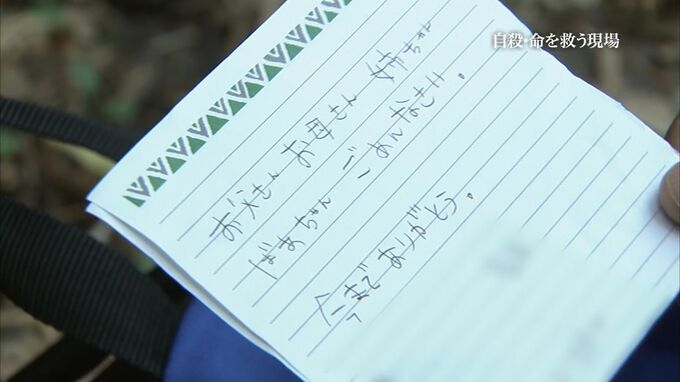 自殺・命を救う現場
お父さん お母さん 姉ちゃん
ばあちゃん ごめんなさい。
今まで ありがとう。